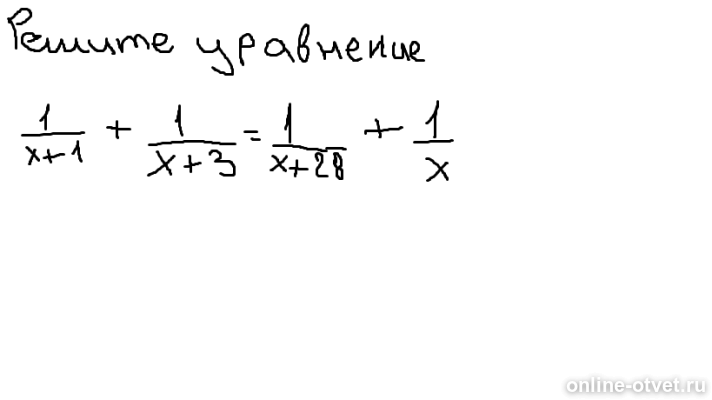 Решите уравнение
1/(x+1) + 1/(x+3) = 1/(x+28) + 1/x
online-otvet.ru